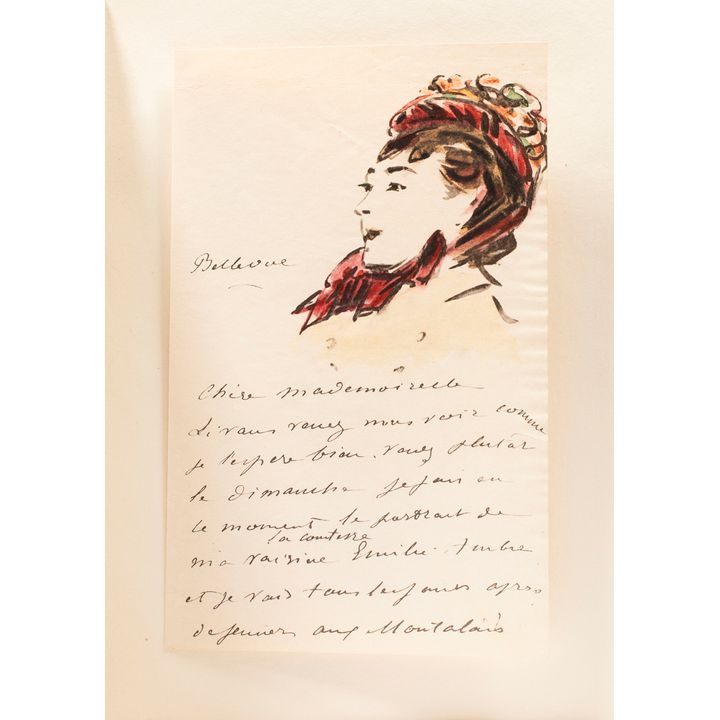 Bellevue
Chère mademoiselle
Si vous venez nous voir comme
je l'espere bien. venez plutôt
le dimanche je fais en
ce moment le portrait de
la comtesse
ma voisine Emilie Ambre
et je vais tous les jours apres
dejeuner aux Montalais